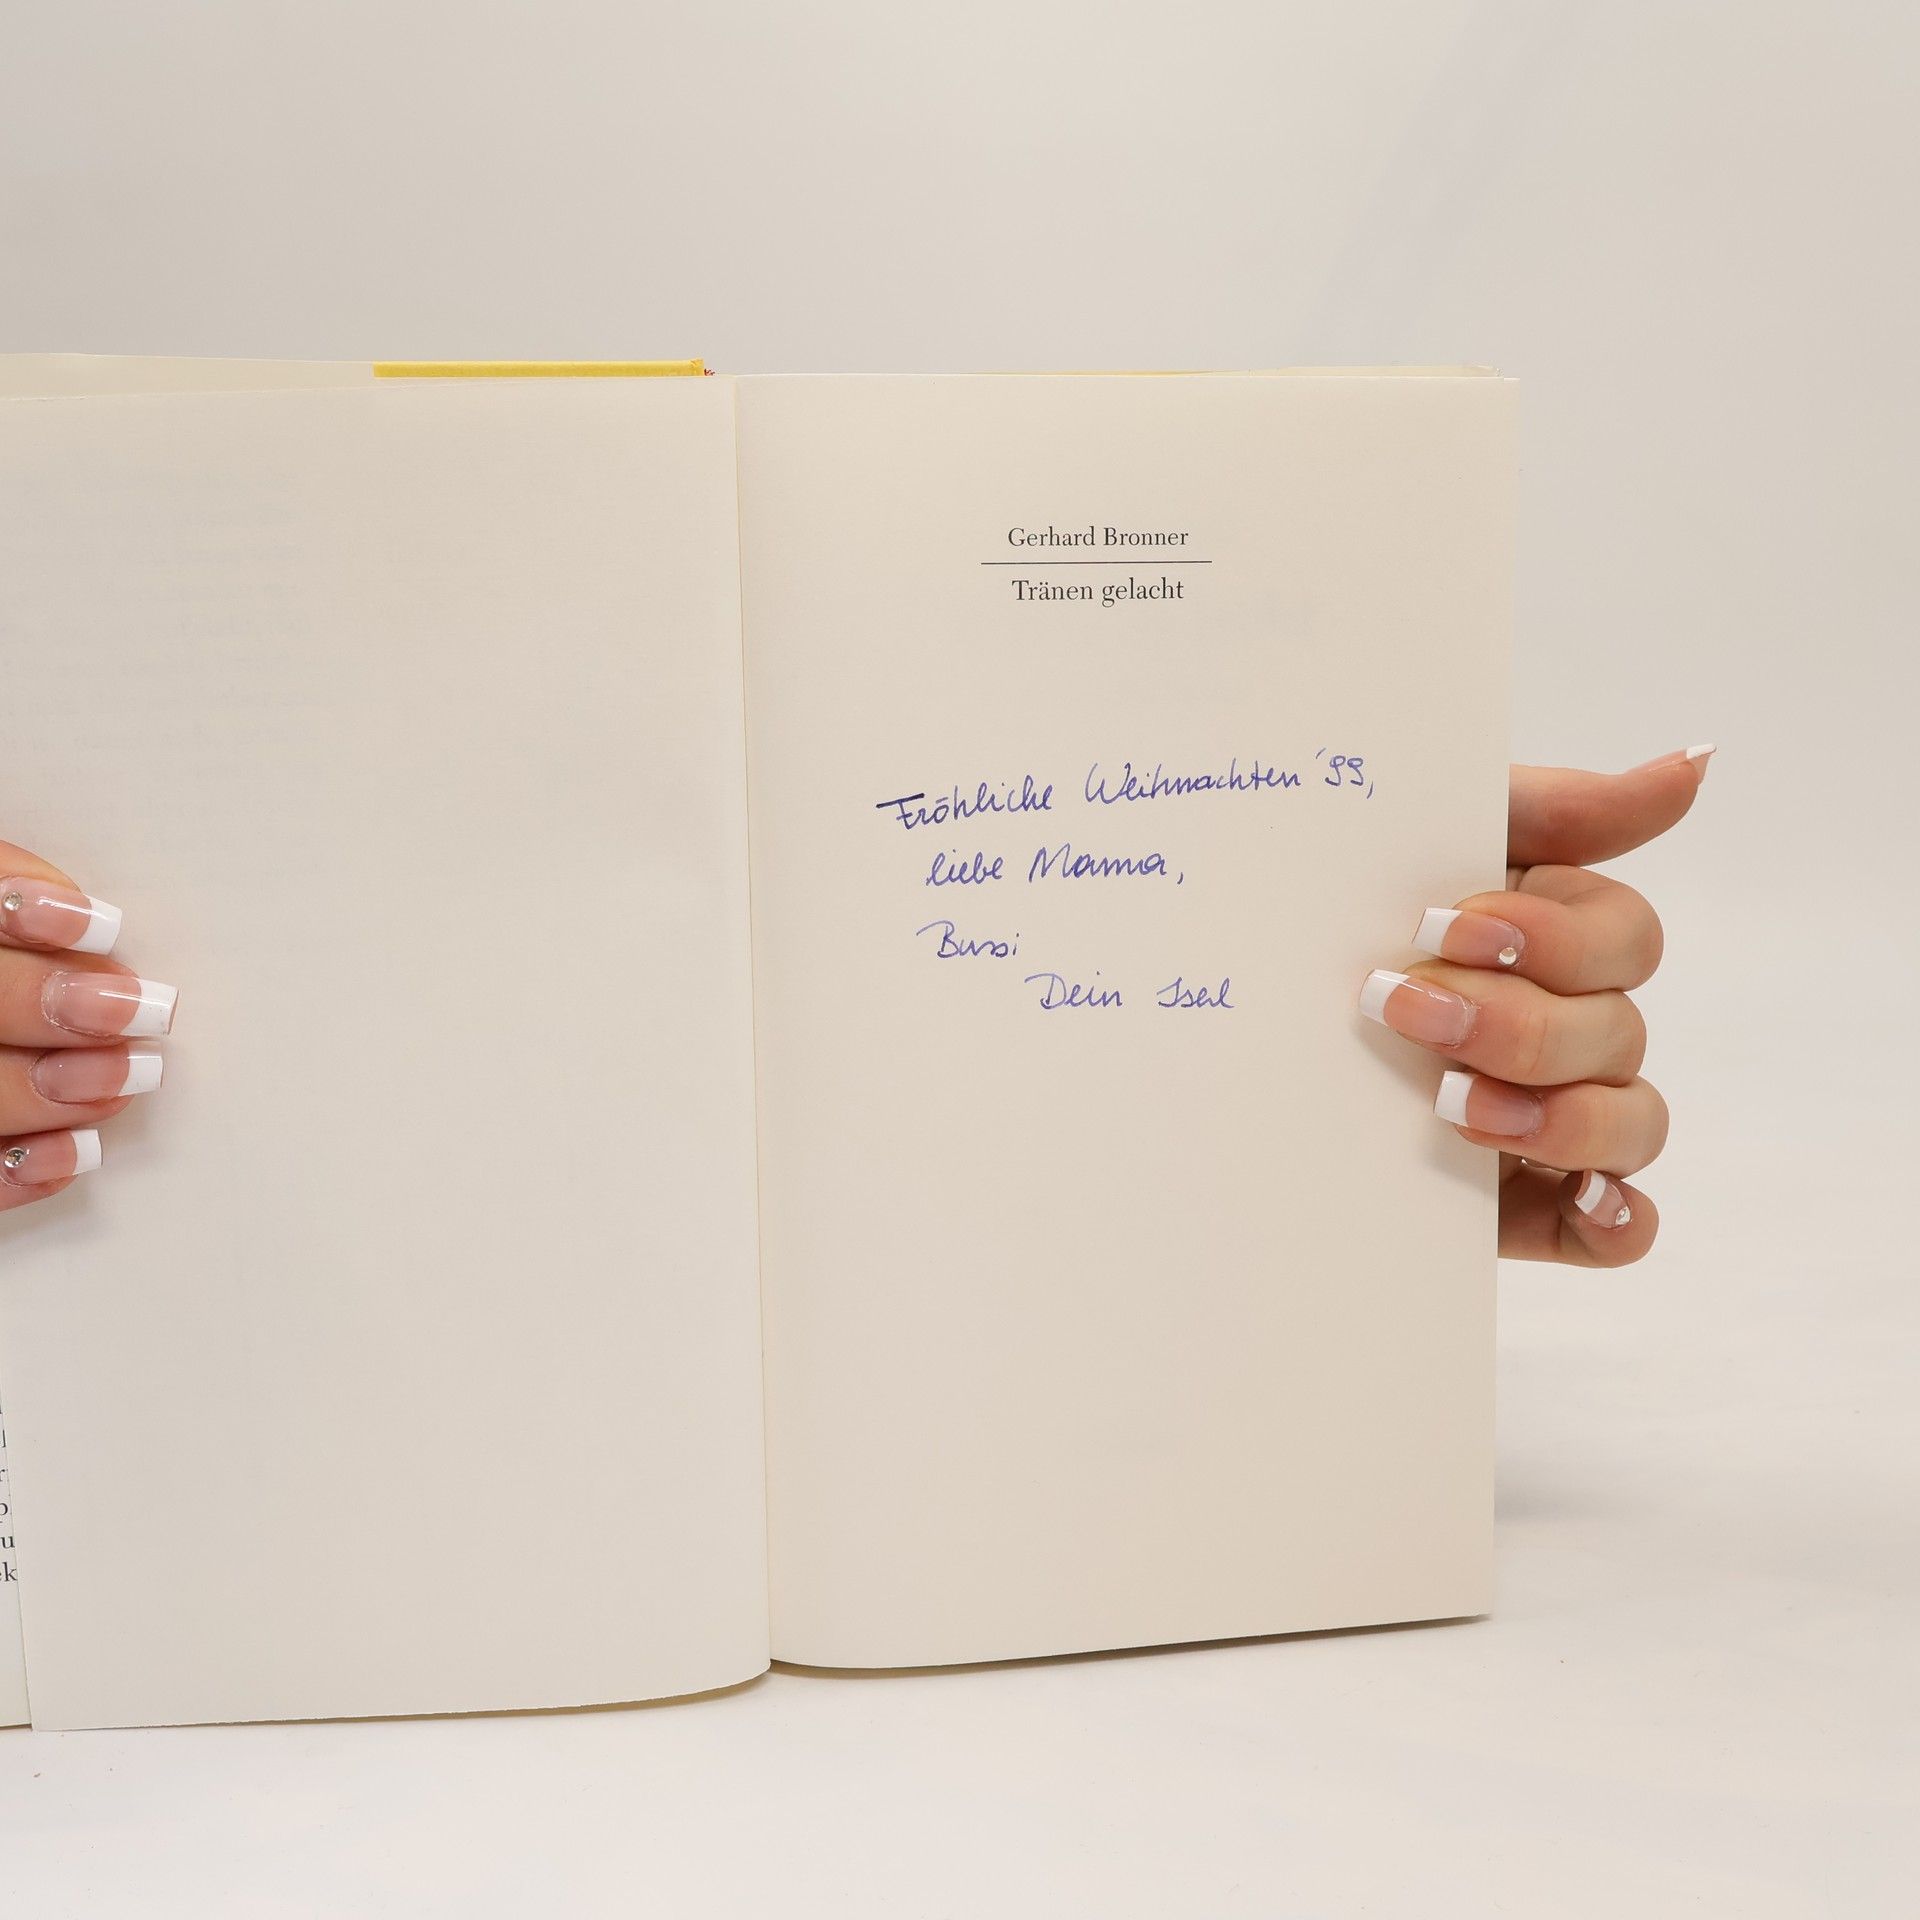 Gerhard Bronner
Tränen gelacht
Fröhliche Weihnachten '99,
liebe Mama,
Bussi
Dein